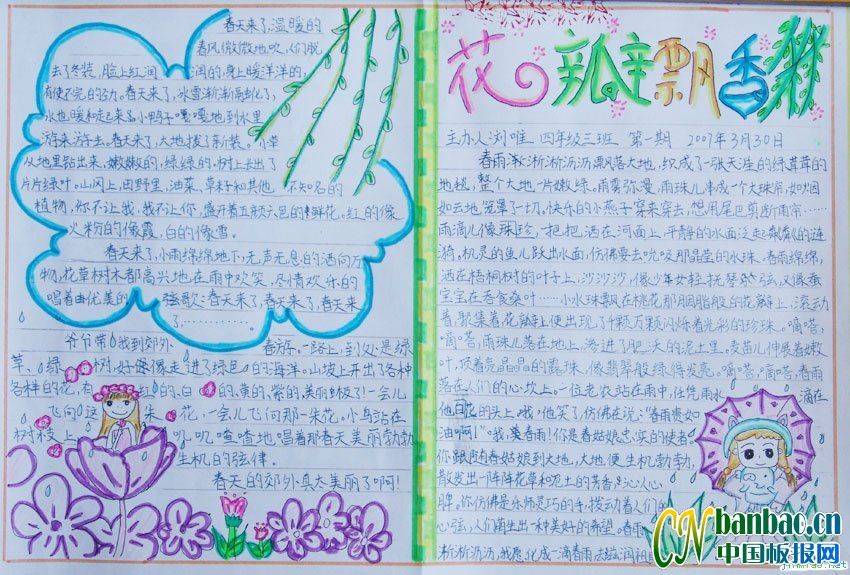 春天来了,温暖的
春风微微地吹,人们脱
去了冬装,脸上红润润的,身上暖洋洋的,
有使不完的劲。春天来了,冰雪渐渐融化了,
水也暖和起来,小鸭子嘎嘎地到水里
游来游去。春天来了,大地披了新装。小草
从地里钻出来,嫩嫩的,绿绿的,树上长出了
片片绿叶。山冈上,田野里,油菜、草籽和其他不知名的
植物,你不让我,我不让你,盛开着五颜六色的鲜花,红的像
火,粉的像霞,白的像雪。
春天来了,小雨绵绵地下,无声无息的洒向万
物,花草树木都高兴地在雨中欢笑,尽情欢乐的
唱着曲优美的弦歌:春天来了,春天来了,春天来
了…………。
爷爷带我到郊外春游。一路上,到处是绿
草、绿树,好像走进了绿色的海洋。山坡上开出了各种
各样的花,有红的、白的、黄的、紫的,美丽极了!一会儿
飞向这朵花,一会儿飞向那一朵花。小鸟站在
树枝上叽叽喳喳地唱着那春天美丽勃勃
生机的弦律。
春天的郊外真太美丽了啊!
花瓣飘香
主办人 刘唯 四年级三班 第一期 2007年3月30日
春雨淅淅沥沥飘落大地,织成了一张天涯的绿茸茸的
地毯,整个大地一片嫩绿。雨雾弥漫,雨珠儿串成一个大珠帘,如烟
如云地笼罩了一切。快乐的小燕子穿来穿去,想用尾巴剪断雨帘……
雨滴儿像珠珍,一把把洒在河面上,平静的水面泛起粼粼的涟
漪。机灵的鱼儿跃出水面,仿佛要去吮吸那晶莹的水珠。春雨绵绵,
洒在梧桐树的叶子上,沙沙沙,像少年女轻抚琴弦,又像蚕
宝宝在吞食桑叶……小水珠飘在桃花那胭脂般的花瓣上,滚动
着,聚集着,花瓣上便出现了千颗万颗闪烁着光彩的珍珠。嘀嗒,
嘀嗒,雨珠儿落在地上,渗进了肥沃的泥土里。麦苗儿伸展着嫩
叶,顶着亮晶晶的露珠,像翡翠般绿得发亮。嘀嗒,嘀嗒,春雨
落在人们的心坎上。一位老农站在雨中,任凭雨水滴在
他的头上,他笑了,仿佛在说:"春雨贵如
油啊!"哦,春雨!你是春姑娘忠实的使者,
你跟随春姑娘到大地,大地便生机勃勃,
散发出一阵阵花草和泥土的芳香,沁人心
脾。你仿佛是乐师灵巧的手,拨动着人们的
心弦,人们萌生出一种美好的希望。春雨
淅淅沥沥,我愿化成一滴春雨去滋润祖
CN banbao.cn
中国板报网
jinmiao.net